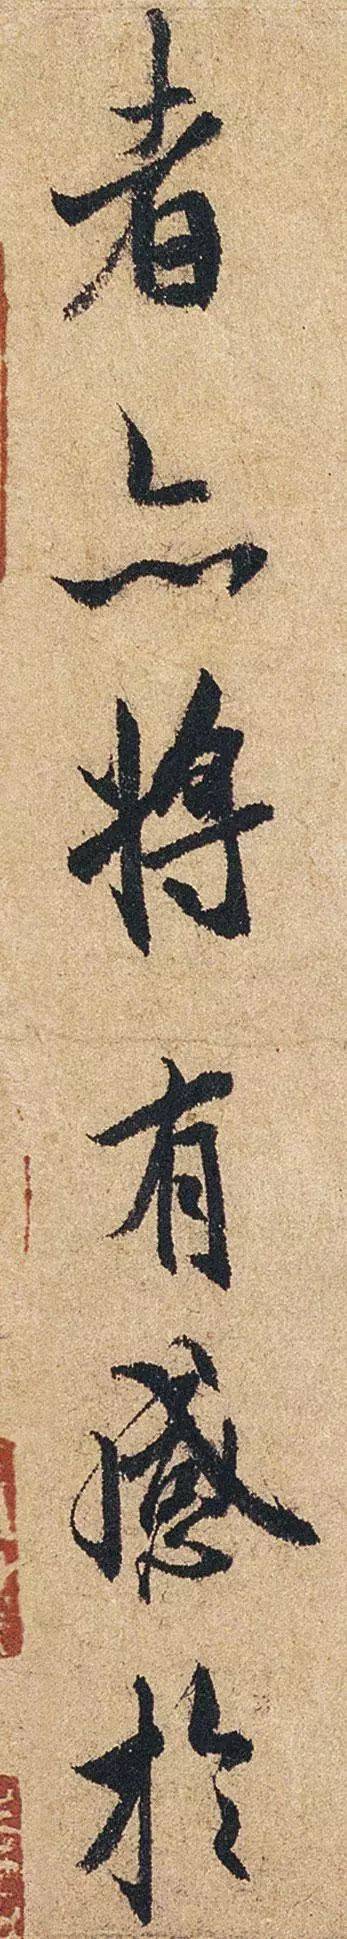 者亦將有感於